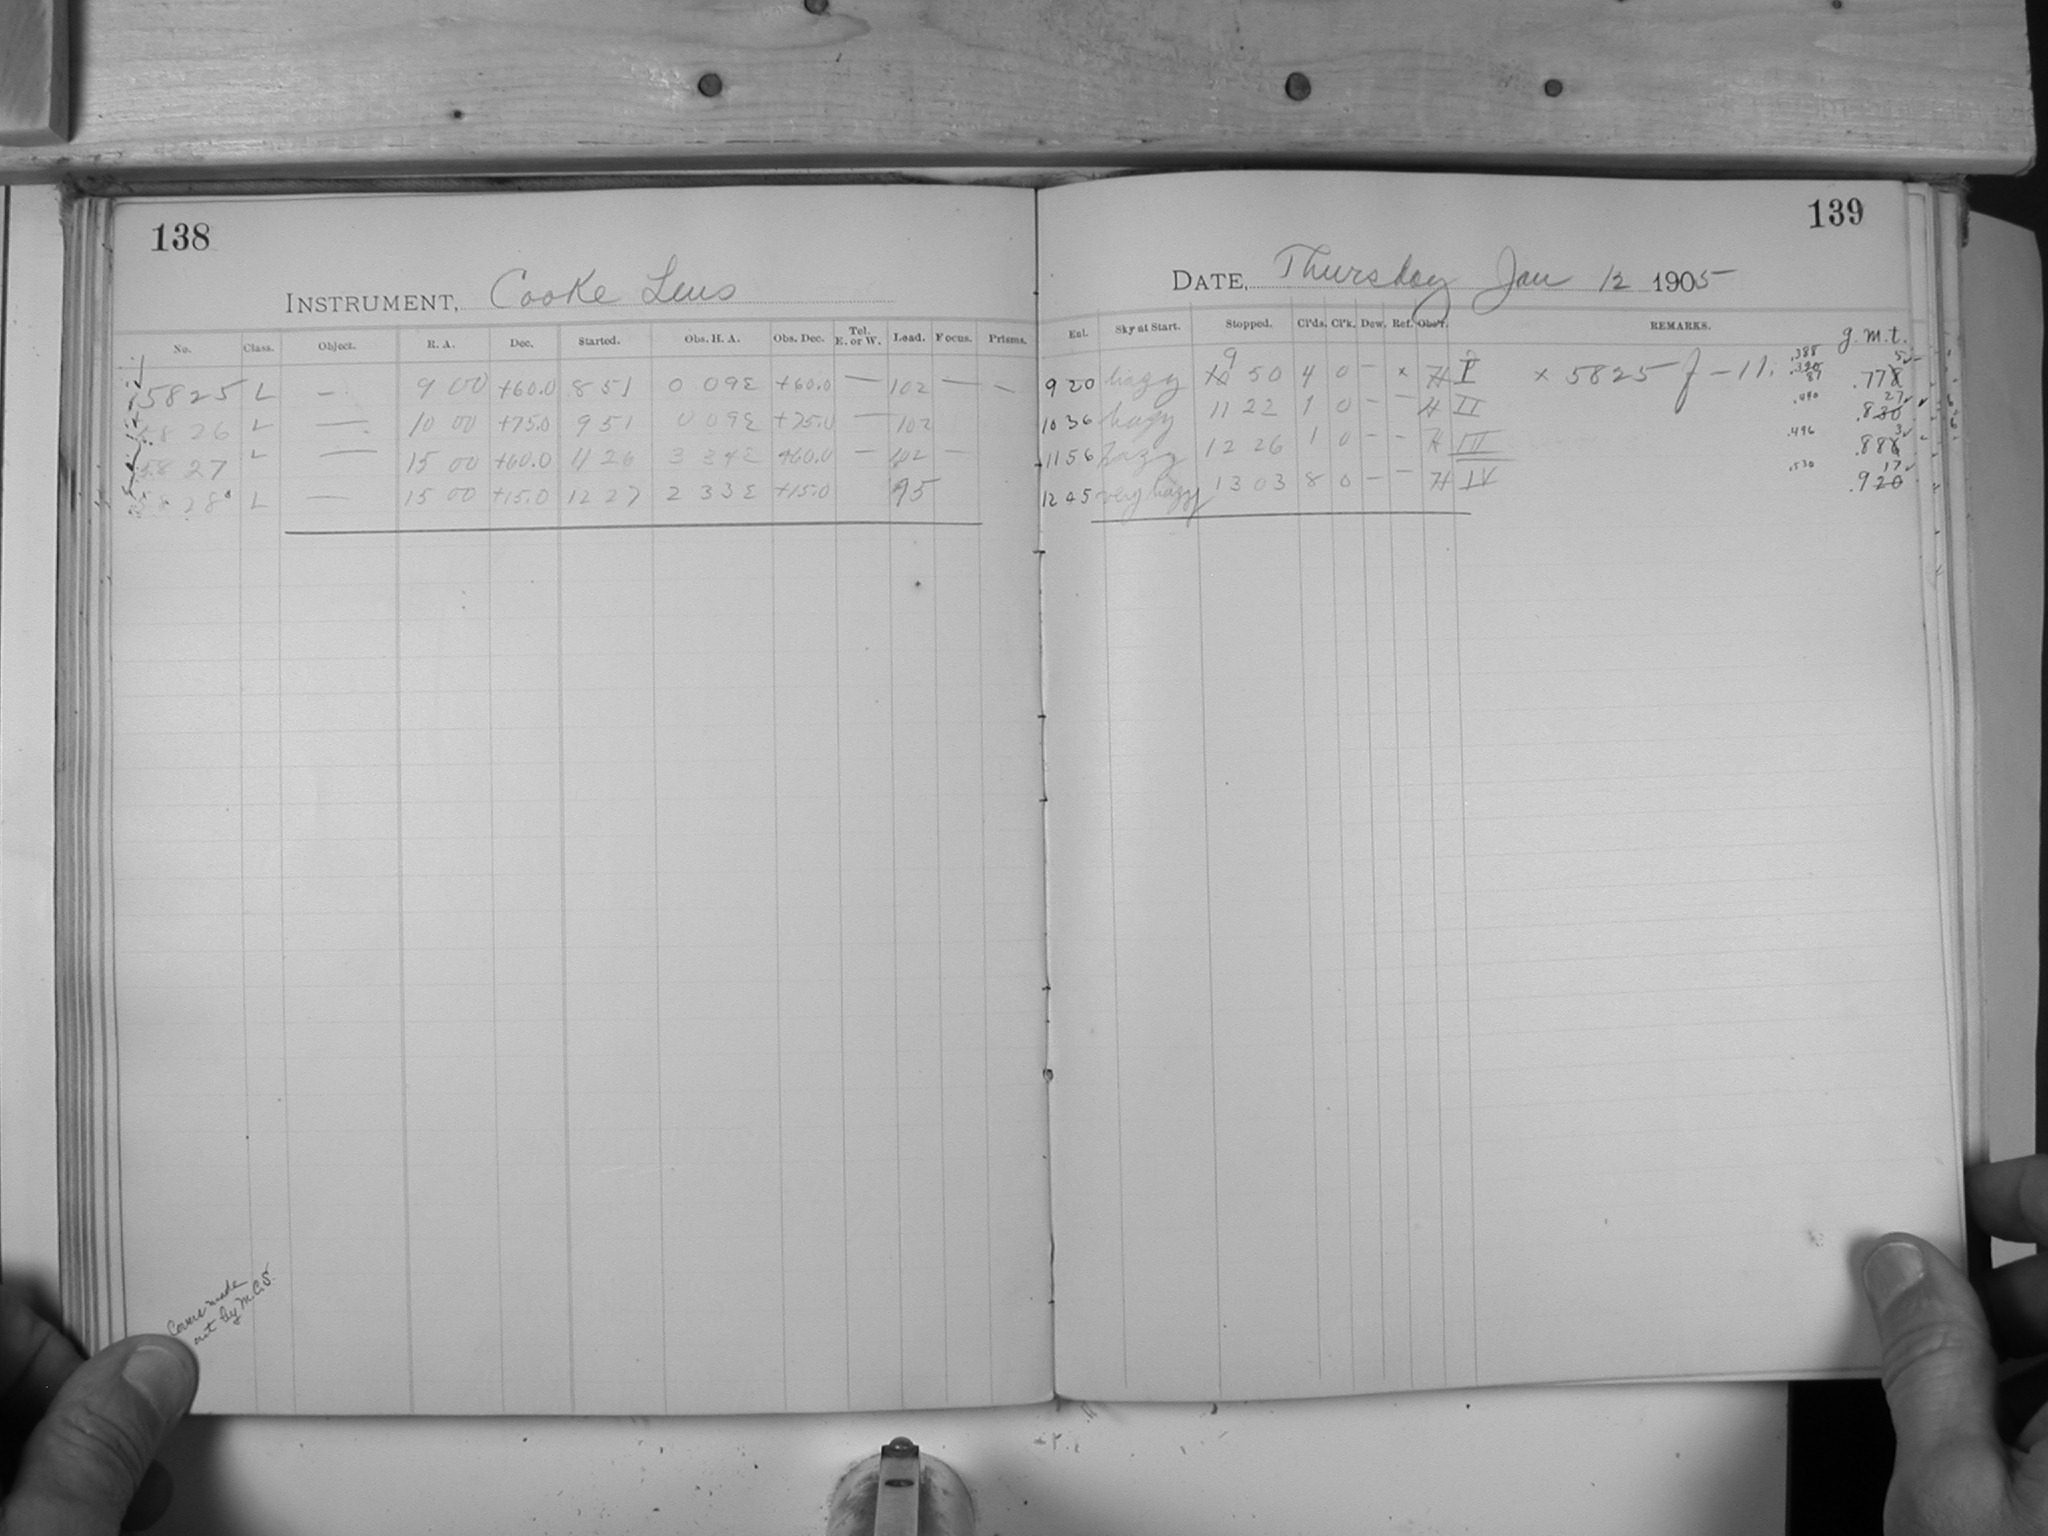 138
INSTRUMENT, Cooke Lens
No. Class. Object. R. A. Dec. Started. Obs. H. A. Obs. Dec. Tel. E. or W. Load. Focus. Prisms.
5825 L — 9 00 +60.0 8 51 0 09E +60.0 — 102 — —
5826 L — 10 00 +75.0 9 51 0 09E +75.0 — 102
5827 L — 15 00 +60.0 11 26 3 34E +60.0 — 102 —
5828 L — 15 00 +15.0 12 27 2 33E +15.0 95
Covers made
out by M.C.S.
139
DATE, Thursday Jan 12 1905
Ent. Sky at Start. Stopped. Cl'ds. Cl'k. Dew. Ref. Obs'r. REMARKS. g.m.t.
9 20 hazy 9 50 4 0 — × H I × 5825 f — 11. .388 .778 5
10 36 hazy 11 22 1 0 — — H II .440 .830 27
11 56 hazy 12 26 1 0 — — H III .496 .886 3
12 45 very hazy 13 03 8 0 — — H IV .530 .920 17